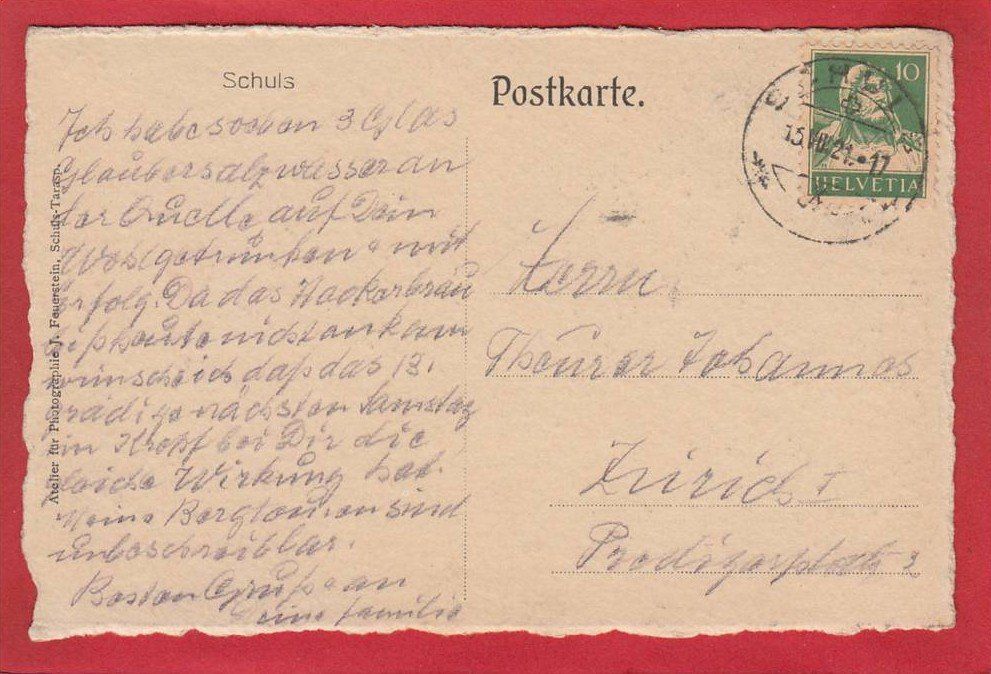 Schuls
Postkarte.
10
HELVETIA
15.VIII.21.•17
Atelier für Photographie J. Feuerstein, Schuls-Tarasp.
Ich habe soeben 3 Glas
Glaubersalzwasser an
der Quelle auf Dein
Wohl getrunken & mit
Erfolg. Da das Hackerbräu
heute nicht ankam
wünsche ich daß das 13.
grädige nächsten Samstag
im Kropf bei Dir die
gleiche Wirkung hat.
Meine Berglaunen sind
unbeschreiblar.
Besten Gruß an
Deine Familie
Herrn
Theurer Johannes
Zürich I
Predigerplatz 2